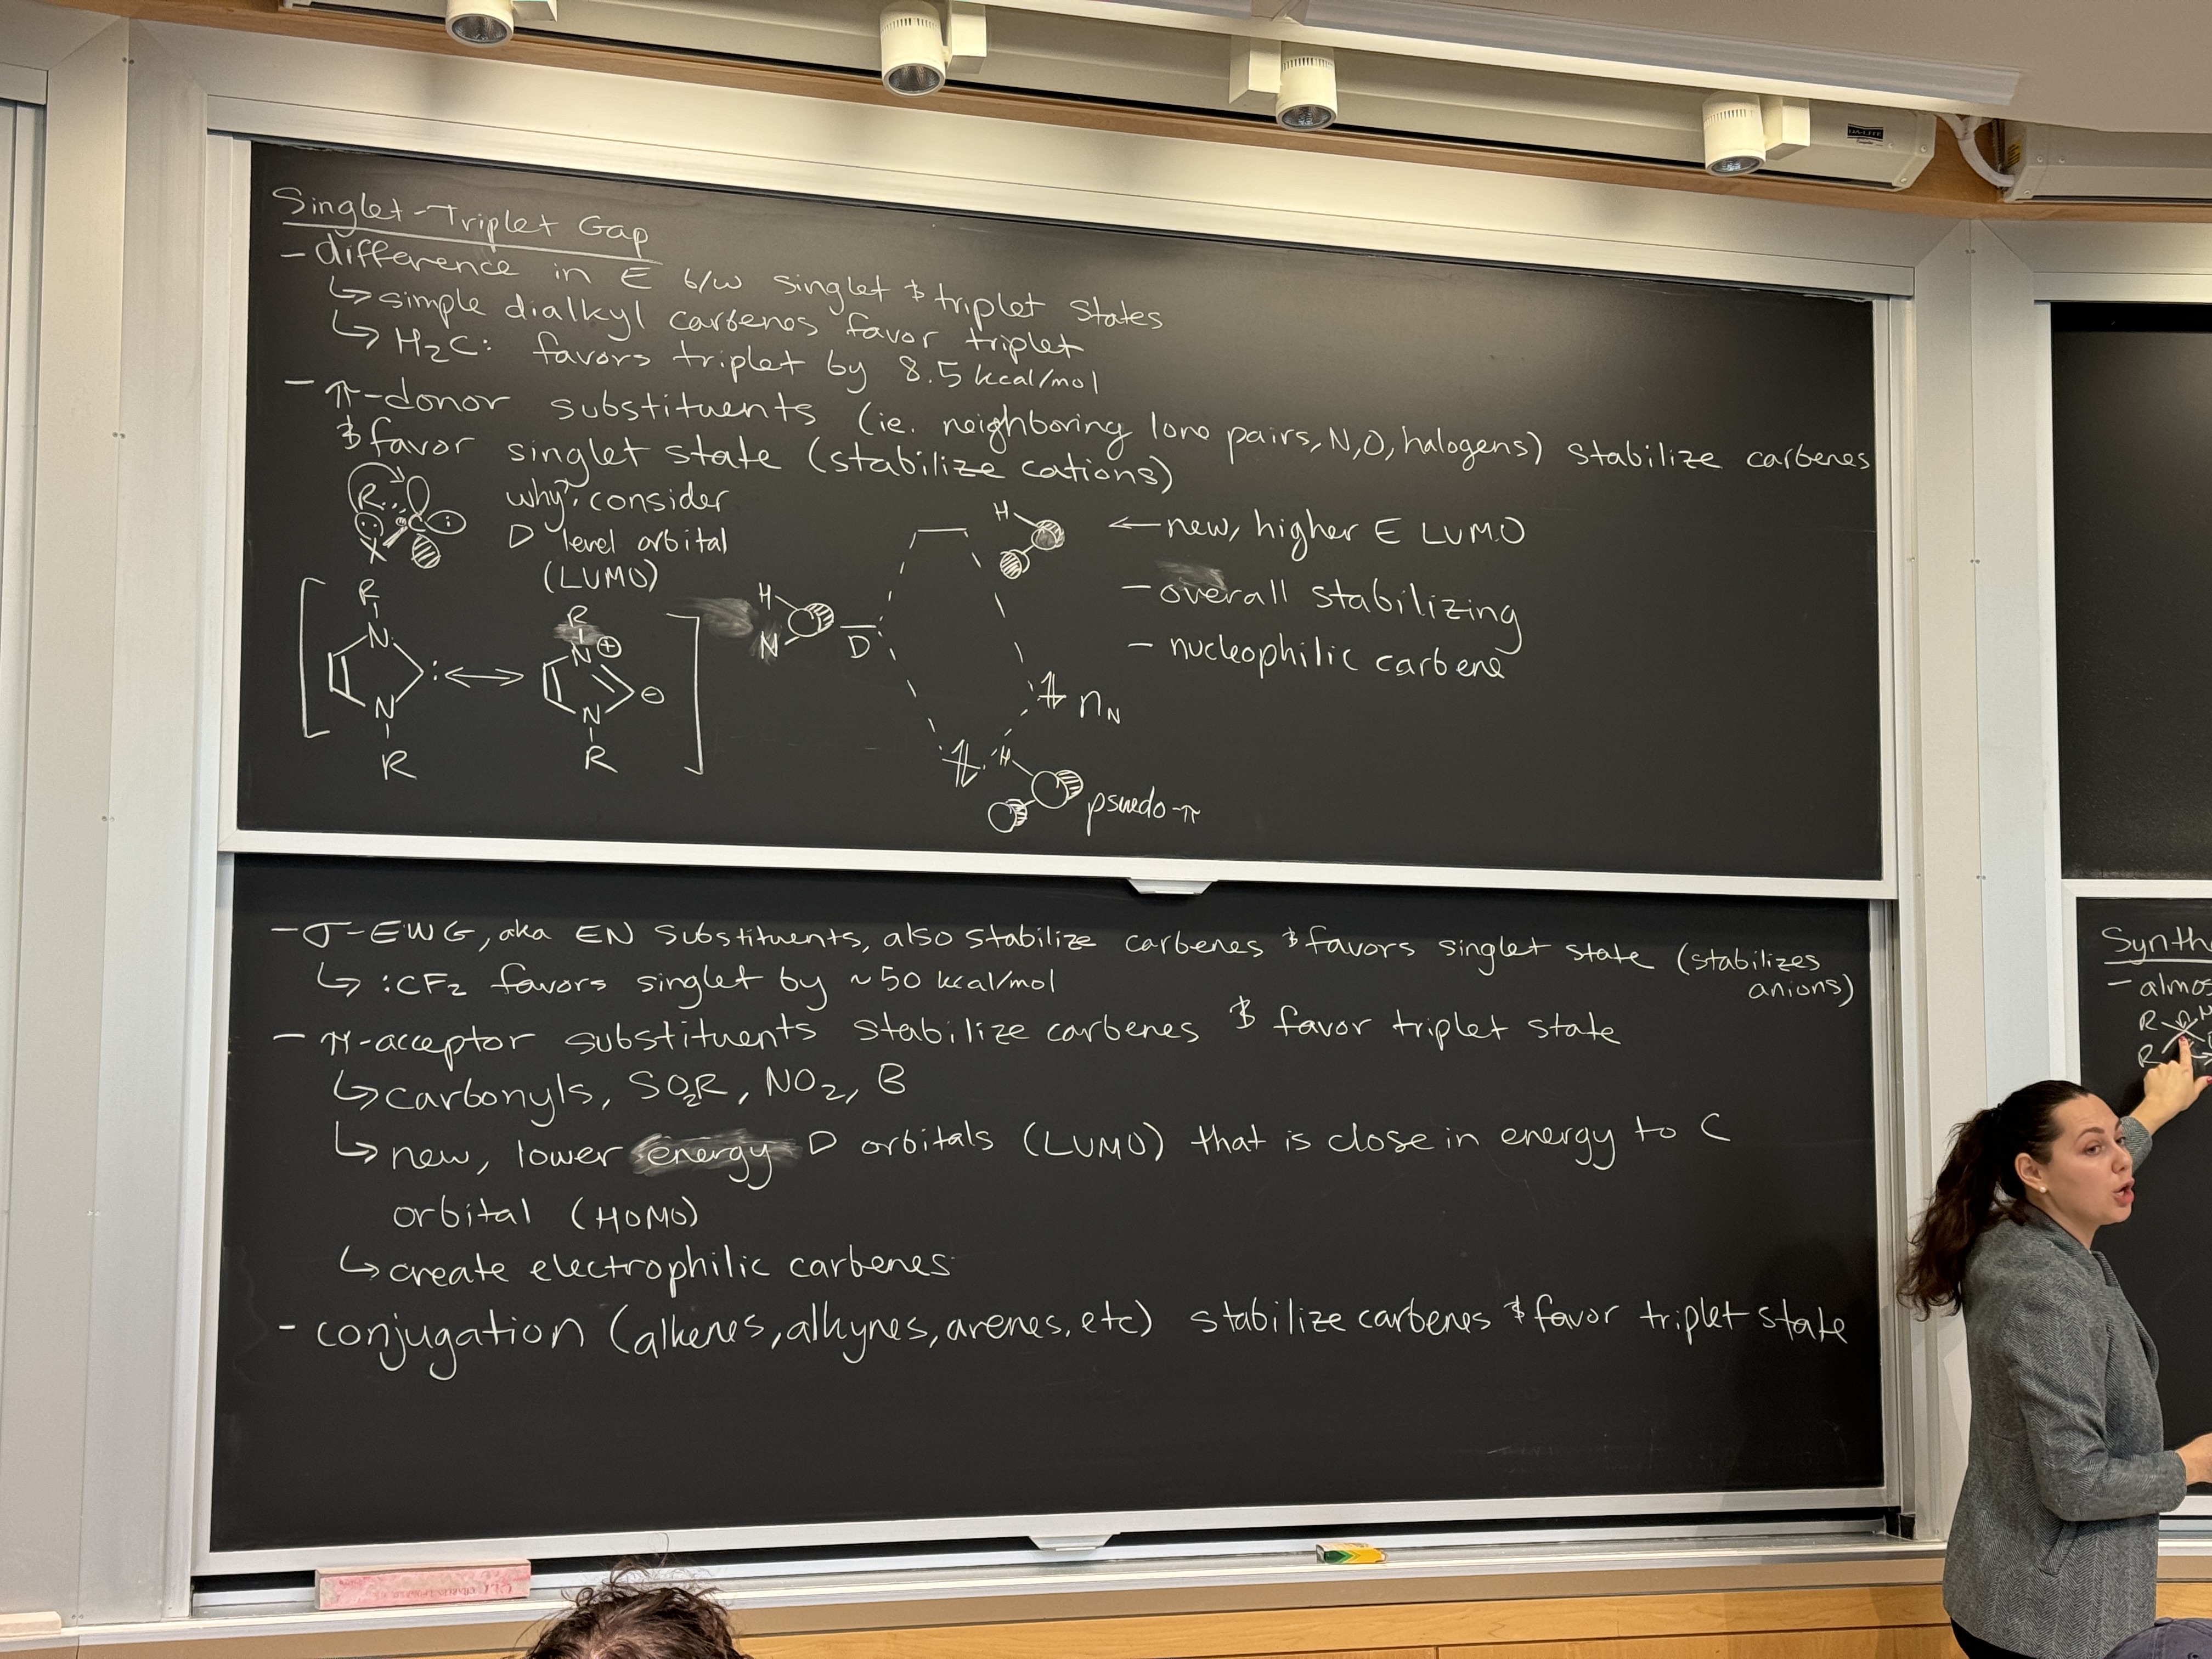 Singlet-Triplet Gap
- difference in E b/w singlet & triplet states
↳ simple dialkyl carbenes favor triplet
↳ H₂C: favors triplet by 8.5 kcal/mol
- π-donor substituents (ie. neighboring lone pairs, N, O, halogens) stabilize carbenes
& favor singlet state (stabilize cations)
R C :
: X
why? consider
D level orbital
(LUMO)
R
N
:
N
R
↔
R
N ⊕
⊖
N
R
H
N
D
H
n_N
H
psuedo-π
← new, higher E LUMO
- overall stabilizing
- nucleophilic carbene
- σ-EWG, aka EN substituents, also stabilize carbenes & favors singlet state (stabilizes
anions)
↳ :CF₂ favors singlet by ~50 kcal/mol
- π-acceptor substituents stabilize carbenes & favor triplet state
↳ carbonyls, SO₂R, NO₂, B
↳ new, lower energy D orbitals (LUMO) that is close in energy to C
orbital (HOMO)
↳ create electrophilic carbenes
- conjugation (alkenes, alkynes, arenes, etc) stabilize carbenes & favor triplet state
Synth
- almos
R
R
DA-LITE